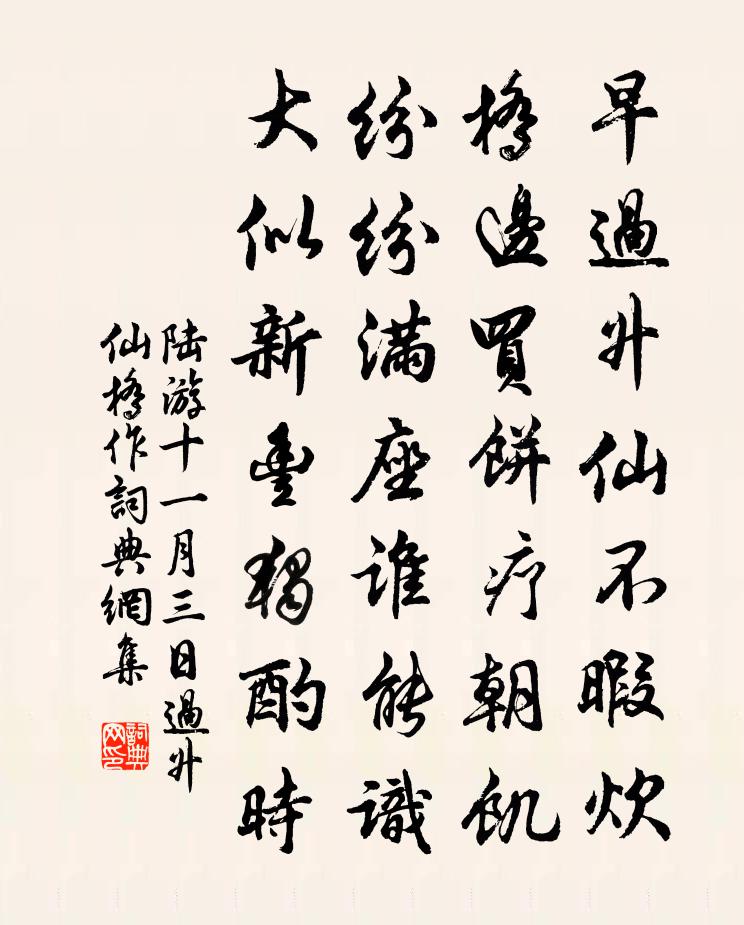 早過升仙不暇炊
橋邊買餅疗朝飢
紛紛滿座誰能識
大似新豊獨酌時
陆游十一月三日過升
仙橋作詞典網集
詞典网印